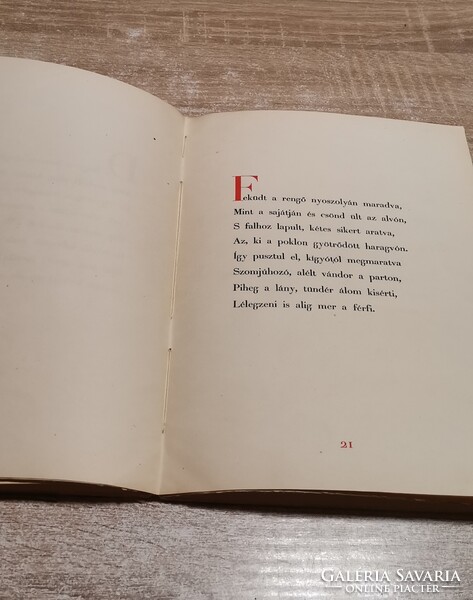 Feküdt a rengő nyoszolyán maradva,
Mint a sajátján és csönd ült az alvón,
S falhoz lapult, kétes sikert aratva,
Az, ki a poklon gyötrődött haragvón.
Így pusztul el, kígyótól megmaratva
Szomjúhozó, alélt vándor a parton,
Piheg a lány, tündér álom kisérti,
Lélegzeni is alig mer a férfi.
21
GALERIA SAVARIA
ONLINE PIACTÉR